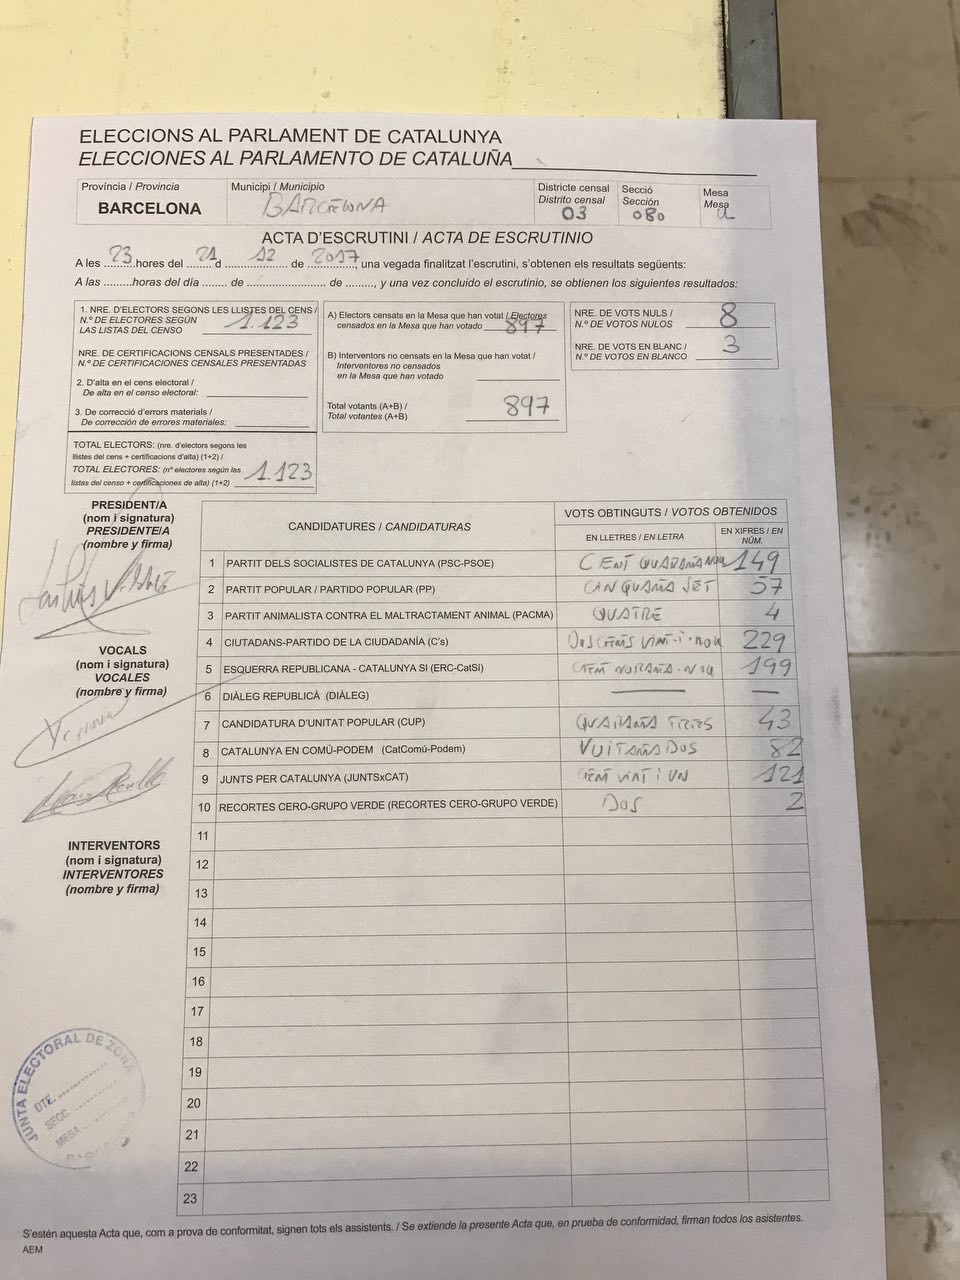 ELECCIONS AL PARLAMENT DE CATALUNYA
ELECCIONES AL PARLAMENTO DE CATALUÑA
Província / Provincia
BARCELONA
Municipi / Municipio
BARCELONA
Districte censal
Distrito censal
03
Secció
Sección
080
Mesa
Mesa
U
ACTA D'ESCRUTINI / ACTA DE ESCRUTINIO
A les ...23...hores del ...21... d ...12... de ...2017..., una vegada finalitzat l'escrutini, s'obtenen els resultats següents:
A las .........horas del día ....... de ........................... de ........., y una vez concluido el escrutinio, se obtienen los siguientes resultados:
1. NRE. D'ELECTORS SEGONS LES LLISTES DEL CENS /
N.º DE ELECTORES SEGÚN
LAS LISTAS DEL CENSO 1.123
NRE. DE CERTIFICACIONS CENSALS PRESENTADES /
N.º DE CERTIFICACIONES CENSALES PRESENTADAS
2. D'alta en el cens electoral /
De alta en el censo electoral:
3. De correcció d'errors materials /
De corrección de errores materiales:
TOTAL ELECTORS: (nre. d'electors segons les
llistes del cens + certificacions d'alta) (1+2) /
TOTAL ELECTORES: (nº electores según las
listas del censo + certificaciones de alta) (1+2) 1.123
A) Electors censats en la Mesa que han votat / Electores
censados en la Mesa que han votado 897
B) Interventors no censats en la Mesa que han votat /
Interventores no censados
en la Mesa que han votado
Total votants (A+B) /
Total votantes (A+B) 897
NRE. DE VOTS NULS /
N.º DE VOTOS NULOS 8
NRE. DE VOTS EN BLANC /
N.º DE VOTOS EN BLANCO 3
PRESIDENT/A
(nom i signatura)
PRESIDENTE/A
(nombre y firma)
VOCALS
(nom i signatura)
VOCALES
(nombre y firma)
INTERVENTORS
(nom i signatura)
INTERVENTORES
(nombre y firma)
CANDIDATURES / CANDIDATURAS
VOTS OBTINGUTS / VOTOS OBTENIDOS
EN LLETRES / EN LETRA
EN XIFRES / EN NÚM.
1 PARTIT DELS SOCIALISTES DE CATALUNYA (PSC-PSOE) CENT QUARAÑA NOU 149
2 PARTIT POPULAR / PARTIDO POPULAR (PP) CINQUAÑA SET 57
3 PARTIT ANIMALISTA CONTRA EL MALTRACTAMENT ANIMAL (PACMA) QUATRE 4
4 CIUTADANS-PARTIDO DE LA CIUDADANÍA (C's) DOSCENTS VINT-I-NOU 229
5 ESQUERRA REPUBLICANA - CATALUNYA SI (ERC-CatSI) CENT NORAÑA-NOU 199
6 DIÀLEG REPUBLICÀ (DIÀLEG) — —
7 CANDIDATURA D'UNITAT POPULAR (CUP) QUARAÑA TRES 43
8 CATALUNYA EN COMÚ-PODEM (CatComú-Podem) VUITAÑA DOS 82
9 JUNTS PER CATALUNYA (JUNTSxCAT) CENT VINT I UN 121
10 RECORTES CERO-GRUPO VERDE (RECORTES CERO-GRUPO VERDE) DOS 2
11
12
13
14
15
16
17
18
19
20
21
22
23
JUNTA ELECTORAL DE ZONA
DTE.
SECC.
MESA
S'estén aquesta Acta que, com a prova de conformitat, signen tots els assistents. / Se extiende la presente Acta que, en prueba de conformidad, firman todos los asistentes.
AEM